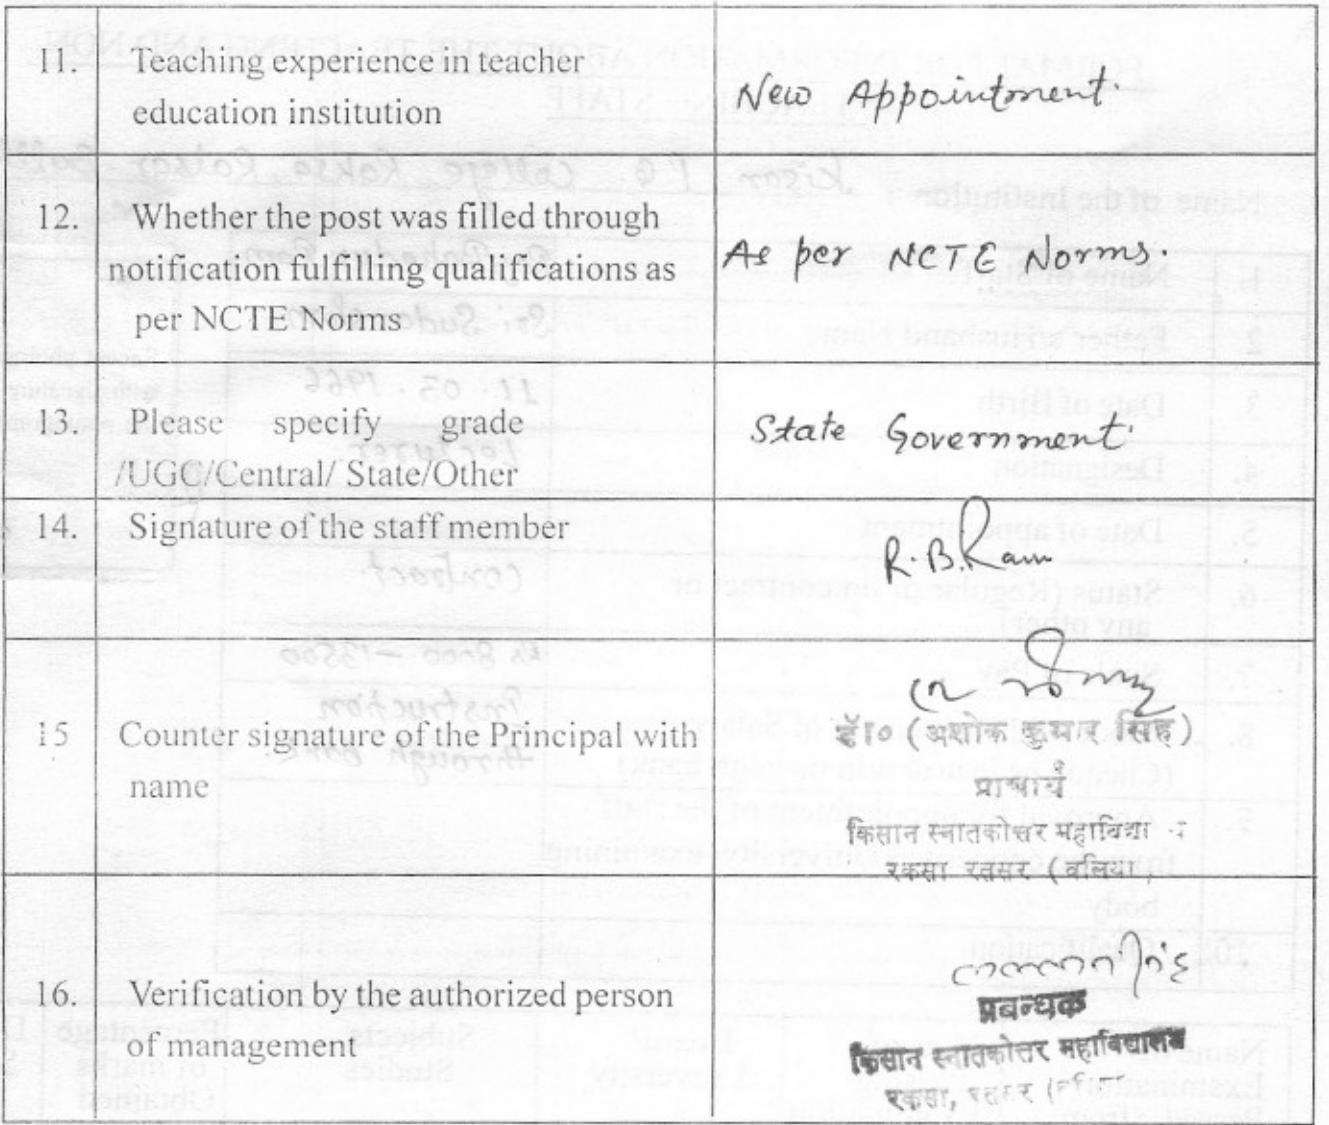 11. Teaching experience in teacher
education institution
New Appointment.
12. Whether the post was filled through
notification fulfilling qualifications as
per NCTE Norms
As per NCTE Norms.
13. Please specify grade
/UGC/Central/ State/Other
State Government
14. Signature of the staff member
R.B.Ram
15 Counter signature of the Principal with
name
डॉ० (अशोक कुमार सिंह)
प्राचार्य
किसान स्नातकोत्तर
रकसा रतसर (बलिया)
16. Verification by the authorized person
of management
प्रबन्धक
किसान स्नातकोत्तर महाविद्यालय
रकसा, रतसर